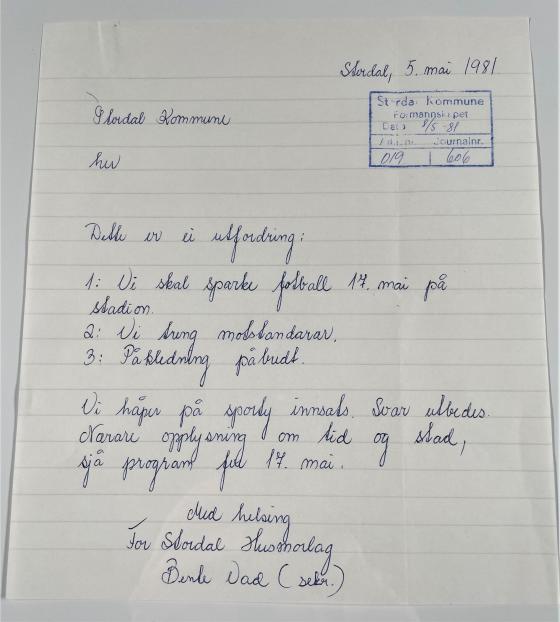 Stordal, 5. mai 1981
Stordal Kommune
Formannskapet
Dato 8/5-81
Journalnr.
019 606
Stordal Kommune
her
Dette er ei utfordring:
1: Vi skal sparke fotball 17. mai på
stadion.
2: Vi treng motstandarar.
3: Påkledning påbudt.
Vi håper på sporty innsats. Svar utbedes.
Nærare opplysning om tid og stad,
sjå program for 17. mai.
Med helsing
For Stordal Husmorlag
Bente Vad (sekr.)